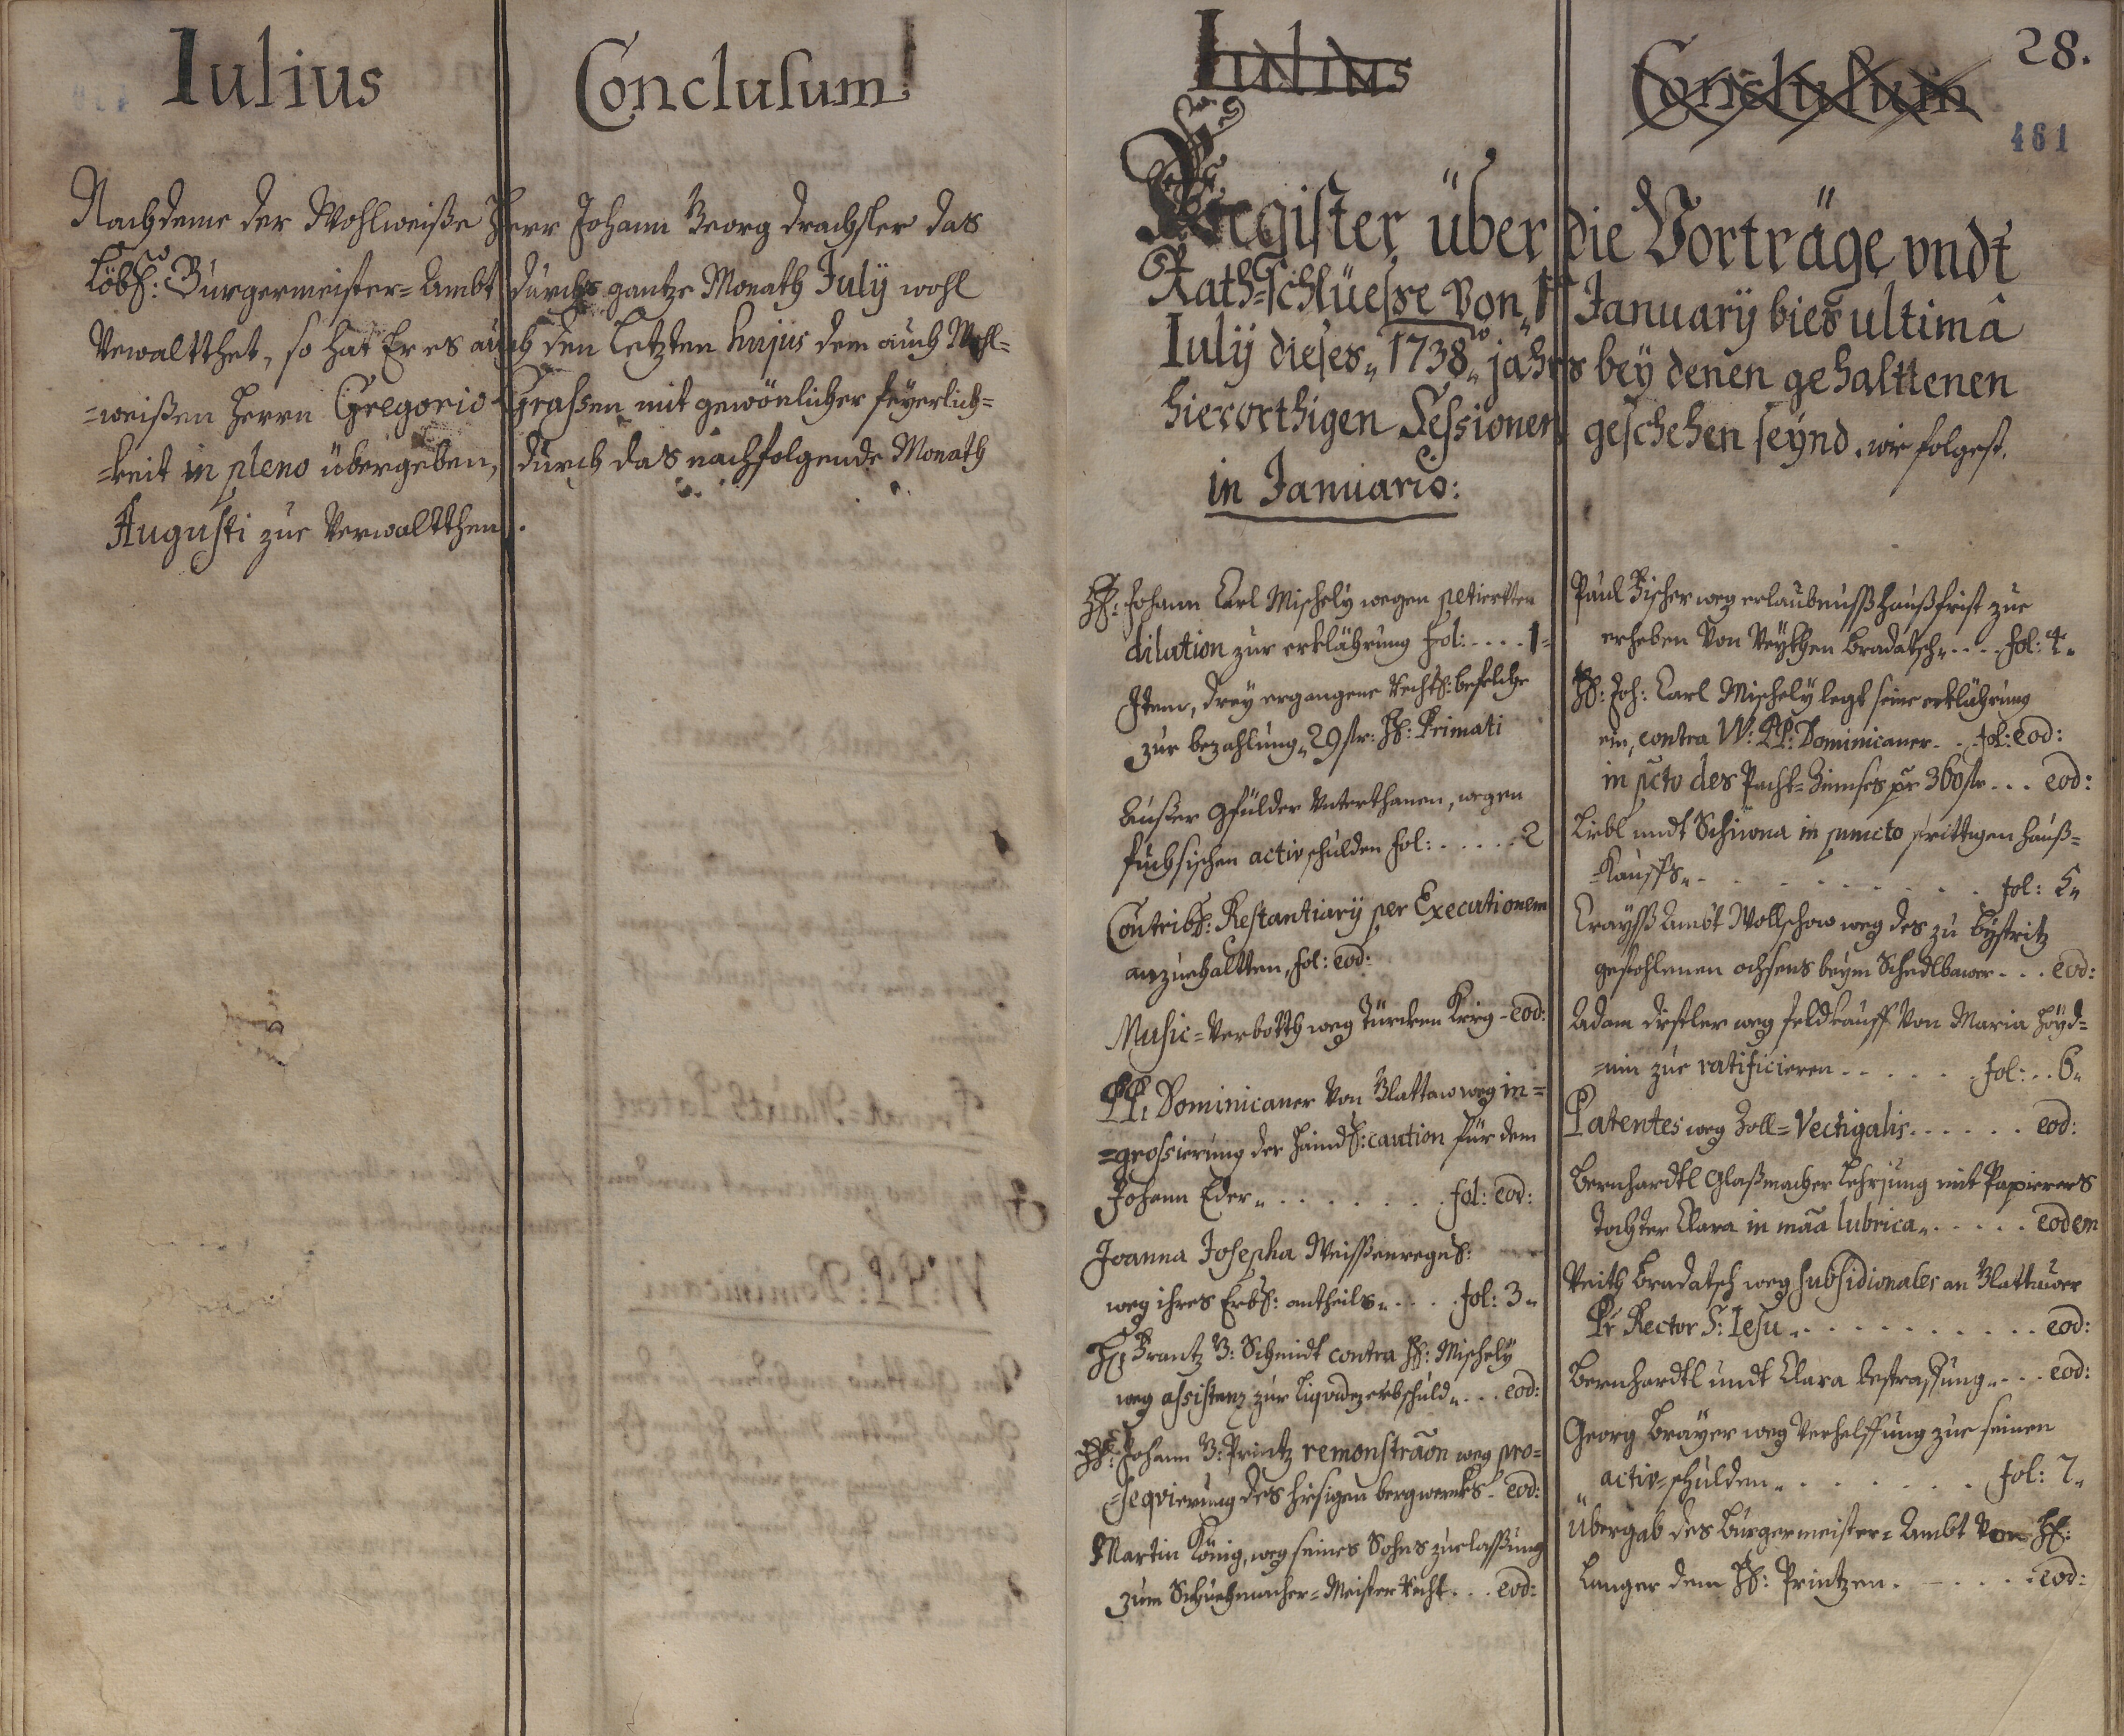 Iulius Conclusum
Nachdeme der Wohlweiße Herr Johann Georg Drachsler das
Löbl: Burgermeister-Ambt durchs gantze Monath Julÿ wohl
Verwaltthet, so hat Er es auch den Letzten hujus dem auch Wohl-
-weißen Herrn Gregorio Grassen mit gewönlicher feÿerlich-
-keit in pleno übergeben, durch das nachfolgende Monath
Augusti zue Verwaltthen.
Iulius Conclusum 28.
461
Register über die Vorträge vndt
Rath-schlüesse von 1t Januarÿ bies ultimâ
Iulÿ dieses 1738 jahrs beÿ denen gehalttenen
hierorthigen Sessionen geschehen seÿnd, wie folgest.
in Januario:
H: Johann Carl Mischelÿ wegen petierten
dilation zur erklährung fol: .... 1
Item, dreÿ ergangene Rechts: befelche
zur bezahlung 29 fr: H: Primati
Außer Gfülder Unterthanen, wegen
fuchsischen activ schulden fol: ..... 2
Contribs: Restantiarÿ per Executionem
anzuehaltten, fol: eod:
Music-Verboth weg Türcken Krieg - eod:
PP: Dominicaner Von Glattaw weg in-
-grossierung der Handl: caution für dem
Johann Eder ....... fol: eod:
Joanna Josepha
weg ihres Erbs: antheils .... fol: 3
H: Frantz G: Schmidt contra H: Mischelÿ
weg assistenz zur liqvidez erbschuld ... eod:
H: Johann G: Printz remonstraon weg pro-
-seqvierung des hiesigen bergwercks - eod:
Martin König, weg seines Sohns zuelassung
zum Schuehmacher-Meister Recht ... eod:
Paul Fischer weg erlaubnuss Haußfrist zue
erheben Von Veÿthen Bradatsch .... fol: 4
H: Joh: Carl Mischelÿ legt seine erklährung
ein, contra W: PP: Dominicaner .. fol: eod:
in pcto des Pacht-Zinnses pr 360 fr ... eod:
Liebl undt Schiwna in puncto strittigen Hauß-
-Kauffs ......... fol: 5
Craÿss Ambt Wollschow weg des zu Bÿstritz
gestohlenen ochsens beÿm Schedlbawr ... eod:
Adam Distler weg feldkauff Von Maria Höÿd-
-nin zue ratificieren ..... fol: .. 6
Patentes weg Zoll-Vectigalis ...... eod:
Bernhardtl Glaßmacher Lehrjung mit Papierers
Tochter Clara in maa lubrica ..... eodem
Veith Bradatsch weg subsidionales an Glattawer
Pr Rector S: Iesu ......... eod:
Bernhardtl undt Clara bestraffung ... eod:
Georg Braÿer weg Verhelffung zue seinen
activ-schulden ........ fol: 7
Übergab des Burgermeister-Ambt Von H:
Langer dem H: Printzen ...... eod: